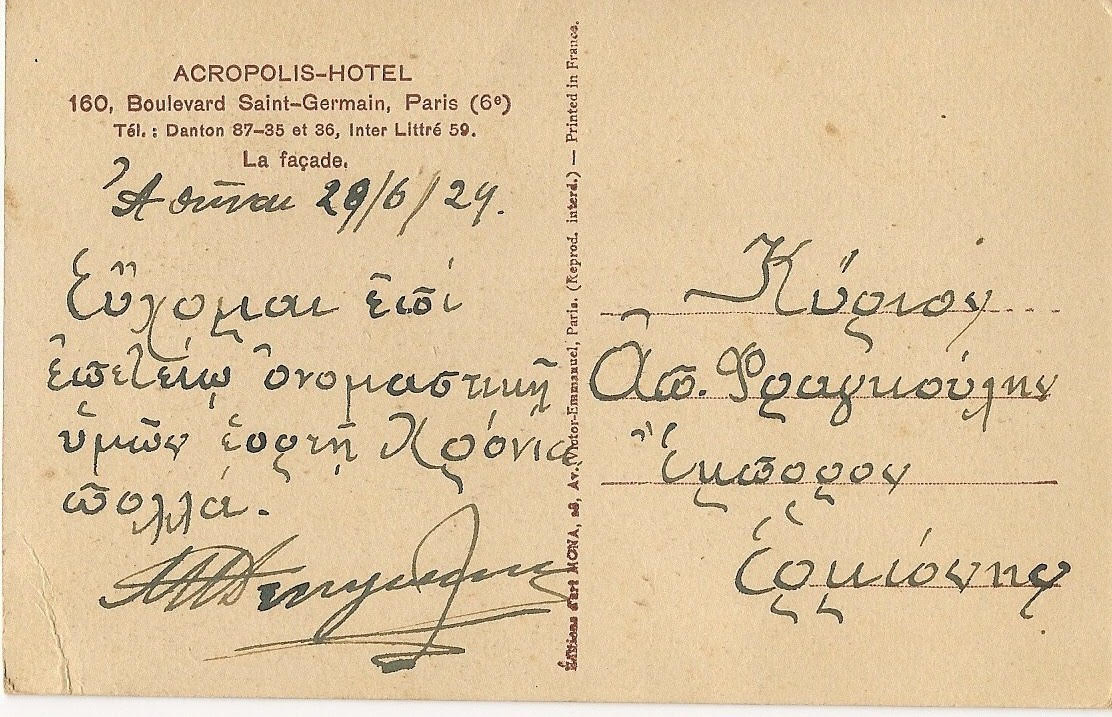 ACROPOLIS-HOTEL
160, Boulevard Saint-Germain, Paris (6e)
Tél. : Danton 87-35 et 36, Inter Littré 59.
La façade.
Ἀθῆναι 29/6/29.
Εὔχομαι ἐπὶ
ἐπετείῳ ὀνομαστικῇ
ὑμῶν ἑορτῇ Χρόνια
πολλά.
Éditions d'art MONA, 28, Av. Victor-Emmanuel, Paris. (Reprod. interd.) — Printed in France.
Κύριον
Ἀπ. Φραγκούλην
Ἔμπορον
Ἑρμιόνην